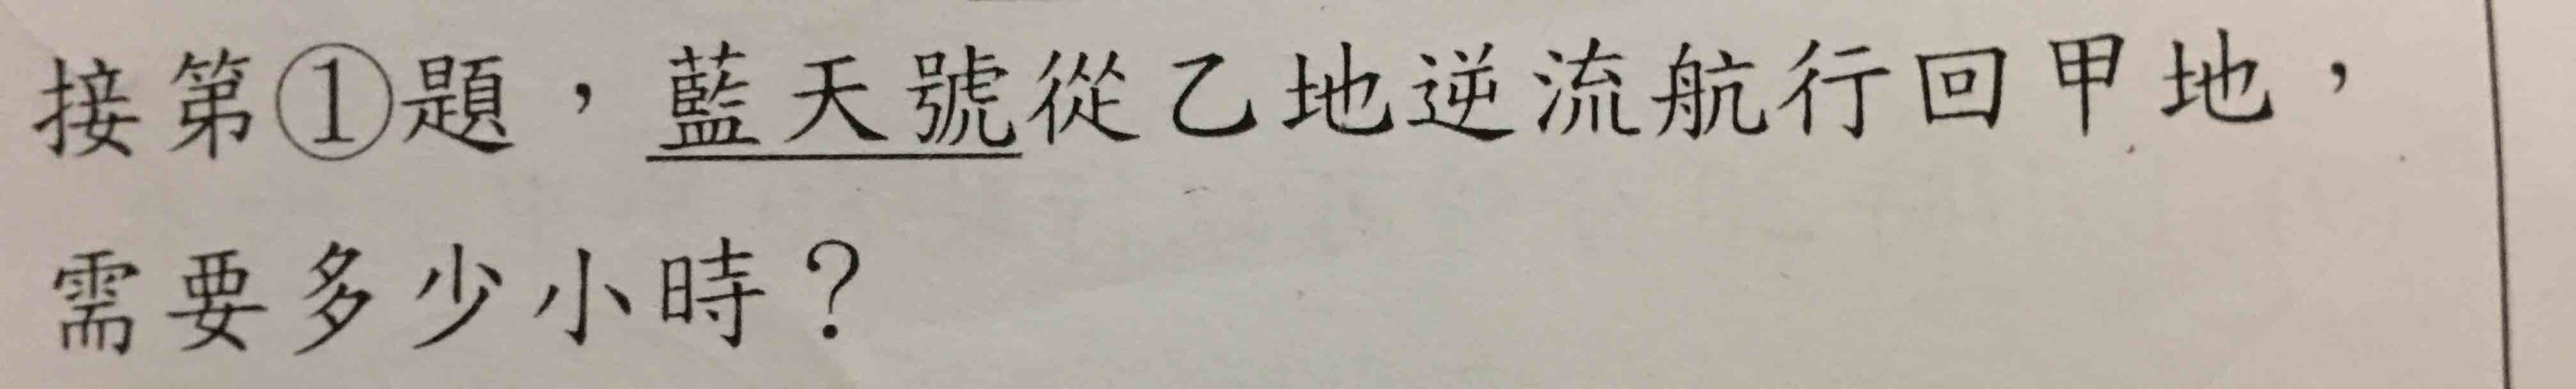 接第①題，藍天號從乙地逆流航行回甲地，
需要多少小時？